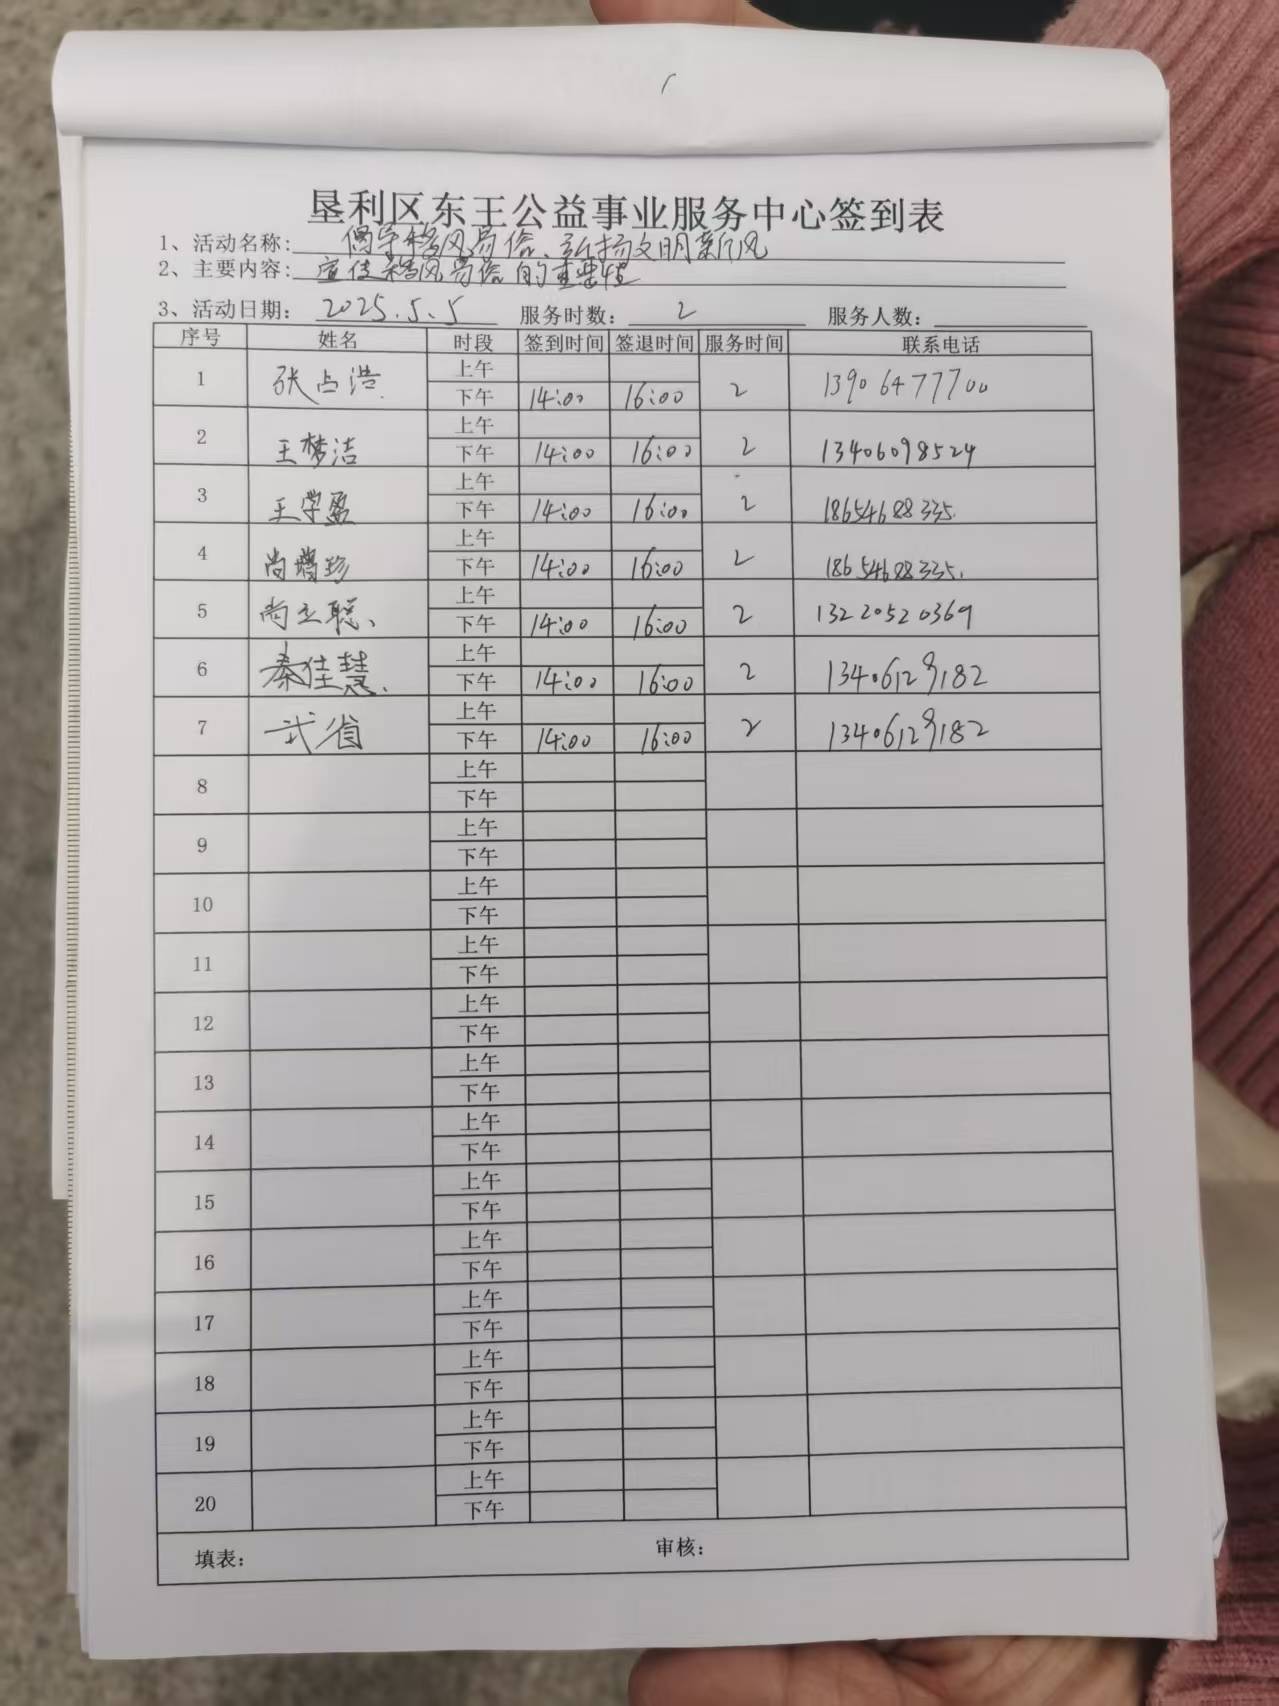 垦利区东王公益事业服务中心签到表
1、活动名称: 倡导移风易俗、弘扬文明新风
2、主要内容: 宣传移风易俗的重要性
3、活动日期: 2025.5.5 服务时数: 2 服务人数:
序号 姓名 时段 签到时间 签退时间 服务时间 联系电话
1 张占浩 上午
下午 14:00 16:00 2 13906477700
2 王梦洁 上午
下午 14:00 16:00 2 13406098524
3 王学盈 上午
下午 14:00 16:00 2 18654688335
4 尚增珍 上午
下午 14:00 16:00 2 18654688335
5 尚立聪 上午
下午 14:00 16:00 2 13220520369
6 秦佳慧 上午
下午 14:00 16:00 2 13406129182
7 武省 上午
下午 14:00 16:00 2 13406129182
8 上午
下午
9 上午
下午
10 上午
下午
11 上午
下午
12 上午
下午
13 上午
下午
14 上午
下午
15 上午
下午
16 上午
下午
17 上午
下午
18 上午
下午
19 上午
下午
20 上午
下午
填表: 审核: